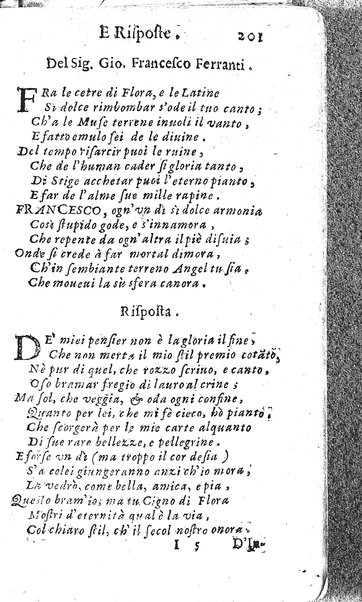 E Risposte. 201
Del Sig. Gio. Francesco Ferranti.
FRa le cetre di Flora, e le Latine
Sì dolce rimbombar s'ode il tuo canto;
Ch'a le Muse terrene inuoli il vanto,
E fatto emulo sei de le diuine.
Del tempo risarcir puoi le ruine,
Che de l'human cader si gloria tanto,
Di Stige acchetar puoi l'eterno pianto,
E far de l'alme sue mille rapine.
FRANCESCO, ogn'vn dì sì dolce armonia
Così stupido gode, e s'innamora,
Che repente da ogn'altra il piè disuia;
Onde si crede à far mortal dimora,
Ch'in sembiante terreno Angel tu sia,
Che moueui la sù sfera canora.
Risposta.
DE' miei pensier non è la gloria il fine,
Che non merta il mio stil premio cotãto,
Nè pur di quel, che rozzo scriuo, e canto,
Oso bramar fregio di lauro al crine;
Ma sol, che veggia, & oda ogni confine,
Quanto per lei, che mi fè cieco, hò pianto,
Che scorgerà per le mie carte alquanto
Di sue rare bellezze, e pellegrine.
E forse vn dì (ma troppo il cor desia)
S'a colei giungeranno anzi ch'io mora,
La vedrò, come bella, amica, e pia,
Questo bram'io; ma tu Cigno di Flora
Mostri d'eternità qual è la via,
Col chiaro stil, ch'il secol nostro onora.
I 5 D'In-